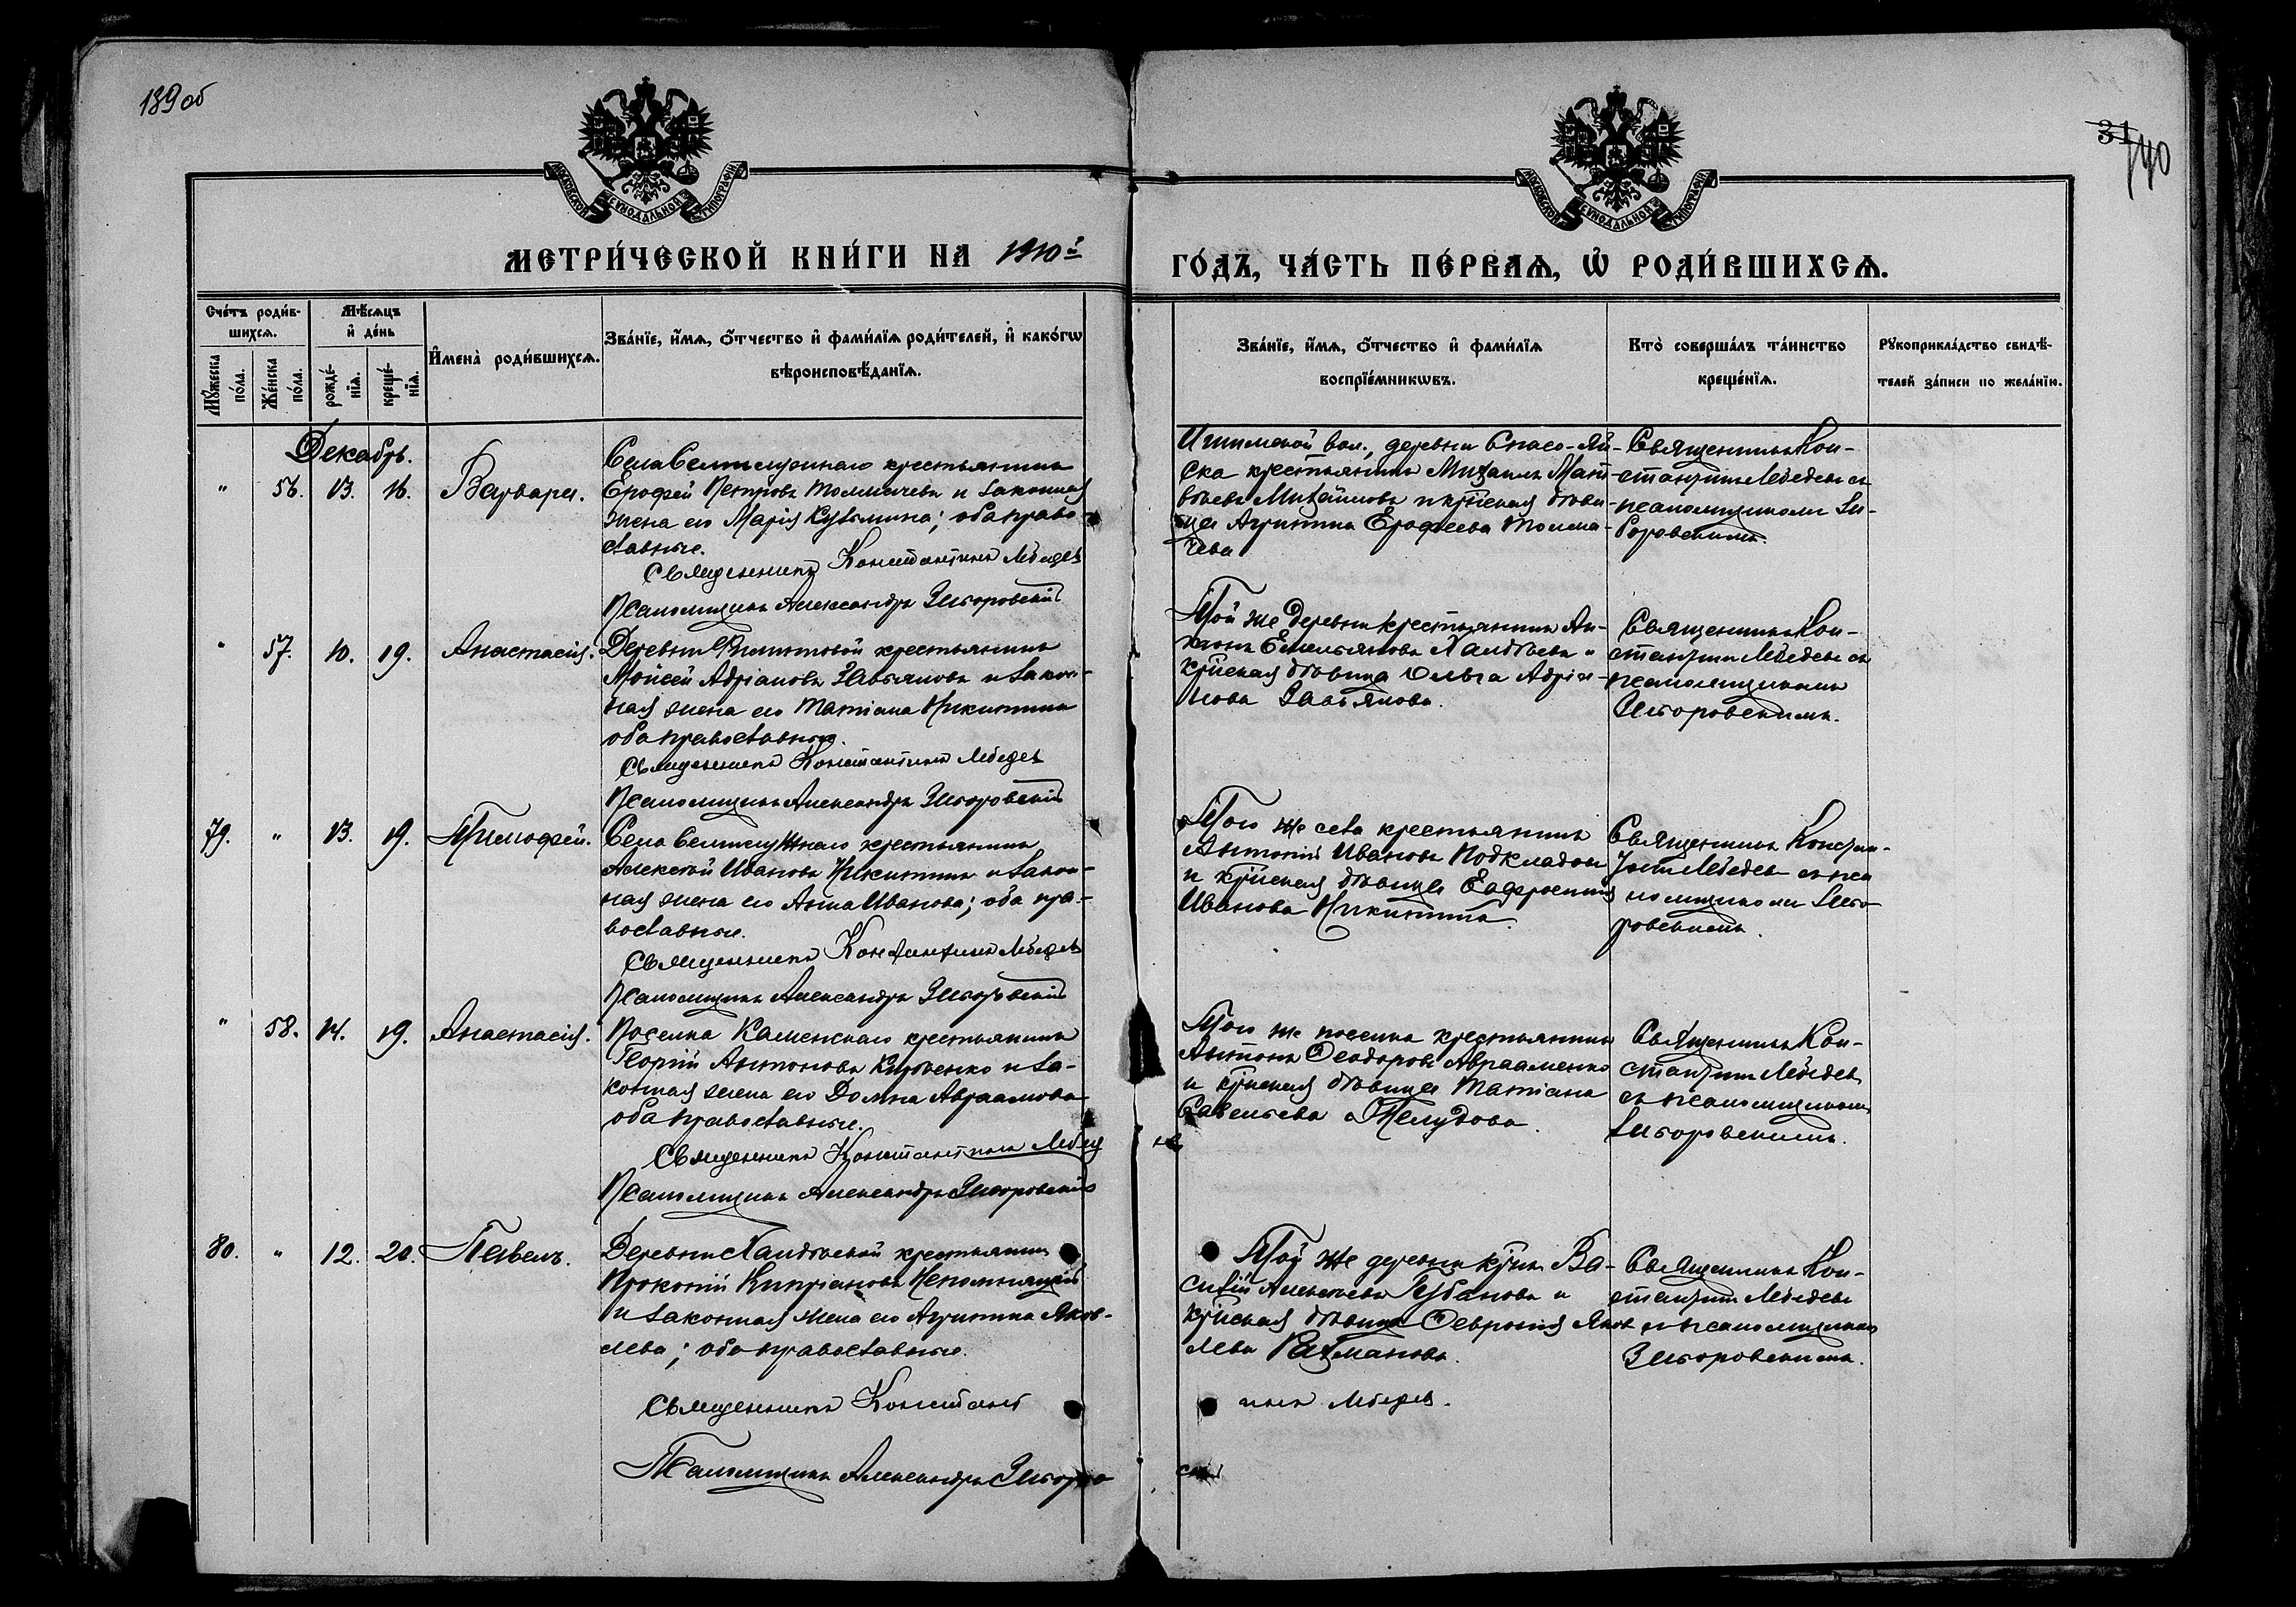 139 об
31
140
МОСКОВСКОЙ СѴНОДАЛЬНОЙ ТИПОГРАФІИ
МОСКОВСКОЙ СѴНОДАЛЬНОЙ ТИПОГРАФІИ
МЕТРИ́ЧЕСКОЙ КНИ́ГИ НА 1910й
ГО́ДЪ, ЧА́СТЬ ПЕ́РВАѦ, Ѡ҆ РОДИ́ВШИХСѦ.
Сче́тъ роди́в-
шихсѧ.
Мꙋ́жеска
по́ла.
Же́нска
по́ла.
Мѣ́сѧцъ
и҆ де́нь
рожде́-
нїѧ.
креще́-
нїѧ.
И҆мена̀ роди́вшихсѧ.
Зва́нїе, и҆́мѧ, ѻ҆́тчество и҆ фами́лїѧ роди́телей, и҆ како́гѡ
вѣроисповѣ́данїѧ.
Зва́нїе, и҆́мѧ, ѻ҆́тчество и҆ фами́лїѧ
воспрїе́мникѡвъ.
Кто̀ соверша́лъ та́инство
креще́нїѧ.
Рꙋкоприкла́дство свидѣ́-
телей за́писи по жела́нїю.
Декабрь.
" 56. 13. 16. Варвара.
Села крестьянинъ
Ерофей Петровъ Толмачевъ и законная
жена его Марія Кузьмина; оба право-
славные.
Священникъ Константинъ Лебедевъ
Псаломщикъ Александръ Зигоровскій
вол., деревни Спасо-Яй-
ска крестьянинъ Михаилъ Мат-
вѣевъ Михайловъ и кр-ская дѣви-
ца Агрипина Ерофеева Толма-
чева
Священникъ Кон-
стантинъ Лебедевъ съ
псаломщикомъ Зи-
горовскимъ.
" 57. 10. 19. Анастасія.
Деревни Филимоновой крестьянинъ
Моисей Адріановъ Завьяловъ и закон-
ная жена его Татіана Никитина
оба православные.
Священникъ Константинъ Лебедевъ
Псаломщикъ Александръ Зигоровскій
Той же деревни крестьянинъ
Емельяновъ Лаптевъ и
кр-ская дѣвица Ольга Адріа-
нова Завьялова.
Священникъ Кон-
стантинъ Лебедевъ съ
псаломщикомъ
Зигоровскимъ.
79. " 13. 19. Тимофей.
Села крестьянинъ
Алексѣй Ивановъ Никитинъ и закон-
ная жена его Анна Иванова; оба пра-
вославные.
Священникъ Константинъ Лебедевъ
Псаломщикъ Александръ Зигоровскій
Того же села крестьянинъ
Антоній Ивановъ Подкладовъ
и кр-ская дѣвица Евфросинія
Иванова Никитина.
Священникъ Констан-
тинъ Лебедевъ съ пса
ломщикомъ Зиго-
ровскимъ.
" 58. 14. 19. Анастасія.
Поселка Каменскаго крестьянинъ
Георгій Антоновъ и за-
конная жена его Домна Авраамова
оба православные.
Священникъ Константинъ Лебед
Псаломщикъ Александръ Зигоровскій
Того же поселка крестьянинъ
Антонъ Ѳеодоровъ Авраменко
и кр-ская дѣвица Татіана
Савельева Желудова.
Священникъ Кон-
стантинъ Лебедевъ
съ псаломщикомъ
Зигоровскимъ.
80. " 12. 20. Павелъ.
Деревни Лаптевой крестьянинъ
Прокопій Кипріановъ Непомнящій
и законная жена его Агрипина Яков-
лева; оба православные.
Священникъ Констант
иномъ Лебедев.
Псаломщикъ Александръ Зигоро
Той же деревни кр-нъ Ва-
силій Алексѣевъ Губановъ и
кр-ская дѣвица Ѳевронія Яков
лева Рахманова.
Священникъ Кон-
стантинъ Лебедевъ
съ псаломщикомъ
Зигоровскимъ.